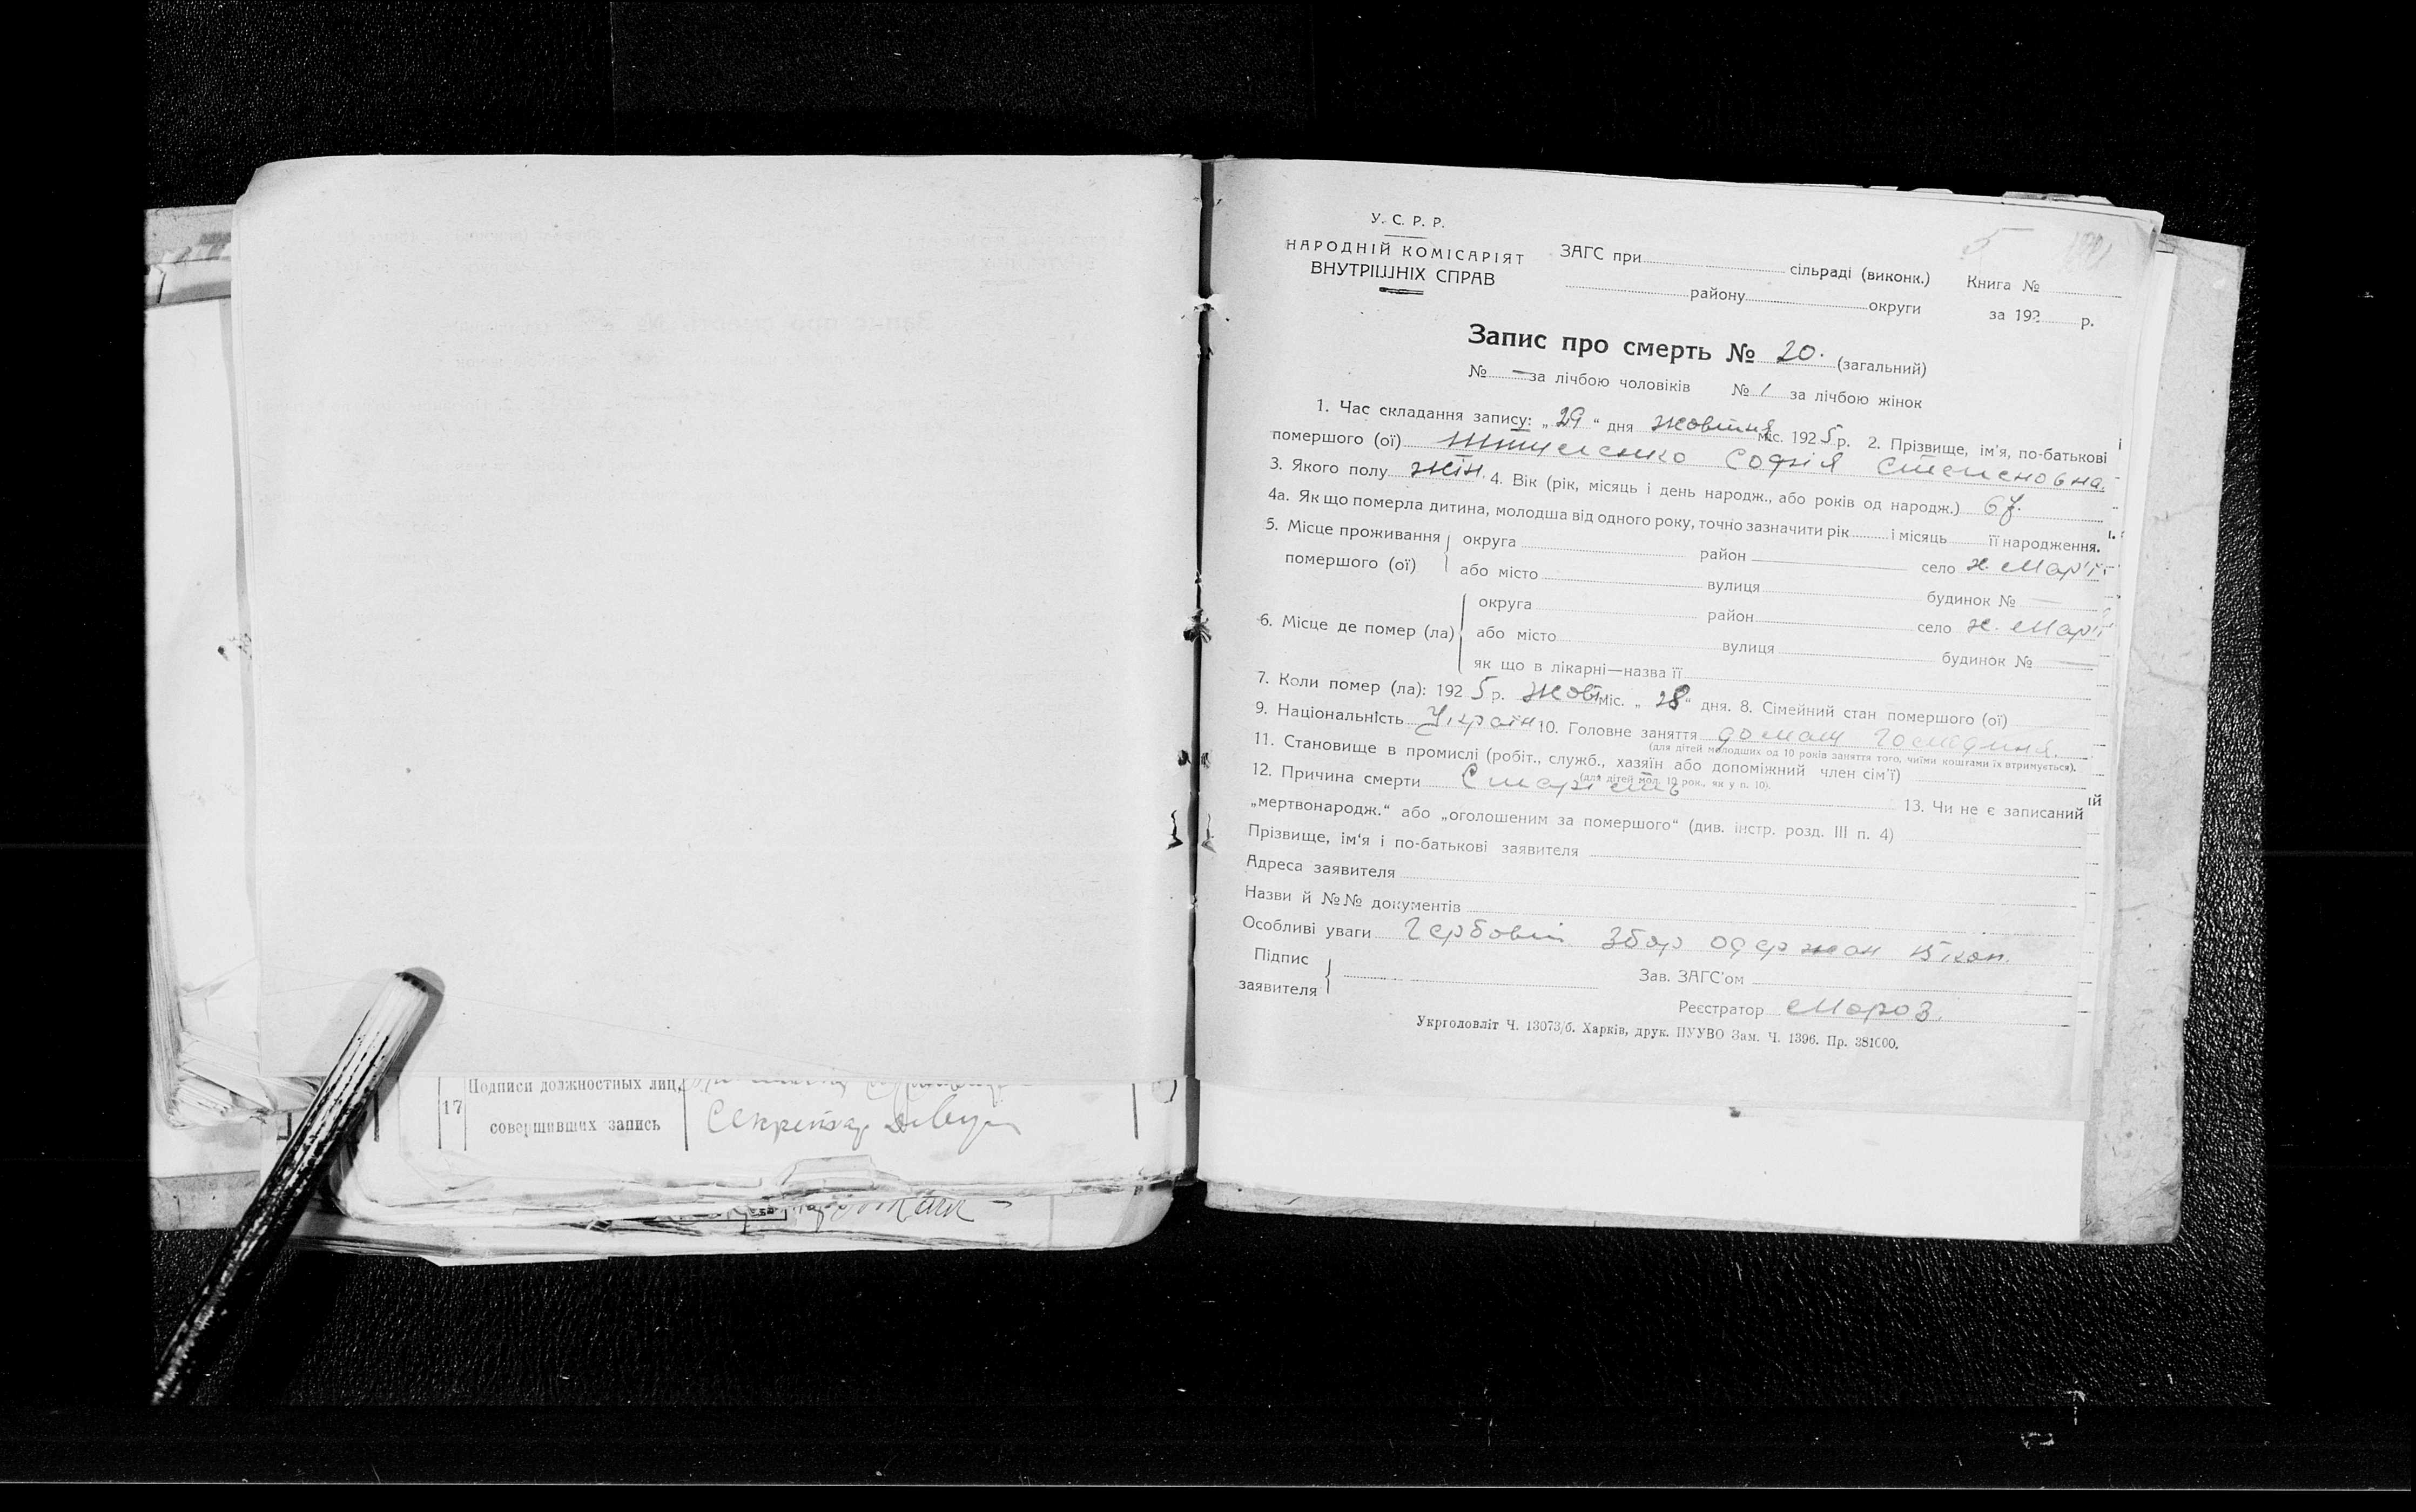 У. С. Р. Р.
НАРОДНІЙ КОМІСАРІЯТ
ВНУТРІШНІХ СПРАВ
ЗАГС при сільраді (виконк.)
району округи
Книга №
за 192 р.
5
Запис про смерть № 20. (загальний)
№ — за лічбою чоловіків № 1 за лічбою жінок
1. Час складання запису: „29“ дня жовтня міс. 1925 р. 2. Прізвище, ім'я, по-батькові
помершого (ої) Софія Степеновна.
3. Якого полу жін. 4. Вік (рік, місяць і день народж., або років од народж.) 67.
4а. Як що померла дитина, молодша від одного року, точно зазначити рік і місяць її народження.
5. Місце проживання помершого (ої)
округа район село х. Мар'ї
або місто вулиця будинок № —
6. Місце де помер (ла)
округа район село х. Мар'ї
або місто вулиця будинок № —
як що в лікарні—назва її
7. Коли помер (ла): 1925 р. жовт міс. „28“ дня. 8. Сімейний стан помершого (ої)
9. Національність Україн 10. Головне заняття домаш господиня.
(для дітей молодших од 10 років заняття того, чиїми коштами їх втримується).
11. Становище в промислі (робіт., служб., хазяїн або допоміжний член сім'ї)
(для дітей мол. 10 рок., як у п. 10).
12. Причина смерти Старість 13. Чи не є записаний
„мертвонародж.“ або „оголошеним за помершого“ (див. інстр. розд. III п. 4)
Прізвище, ім'я і по-батькові заявителя
Адреса заявителя
Назви й №№ документів
Особливі уваги Гербовий збор одержан 15 коп.
Підпис
заявителя
Зав. ЗАГС'ом
Реєстратор Мороз.
Укрголовліт Ч. 13073/б. Харків, друк. ПУУВО Зам. Ч. 1396. Пр. 381000.
17 Подписи должностных лиц,
совершивших запись
Секретар